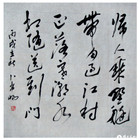 归人乘野艇
带月过江村
正落寒潮水
相随送到门
丙戌